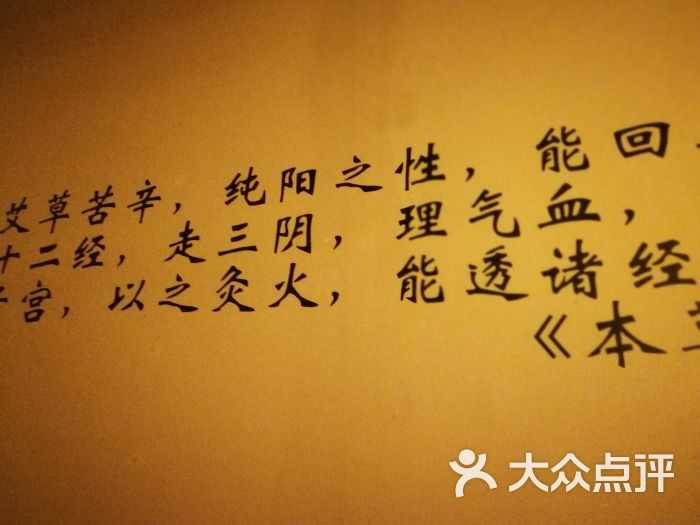 艾草苦辛，纯阳之性，能回
十二经，走三阴，理气血，
宫，以之灸火，能透诸经
《本草
大众点评